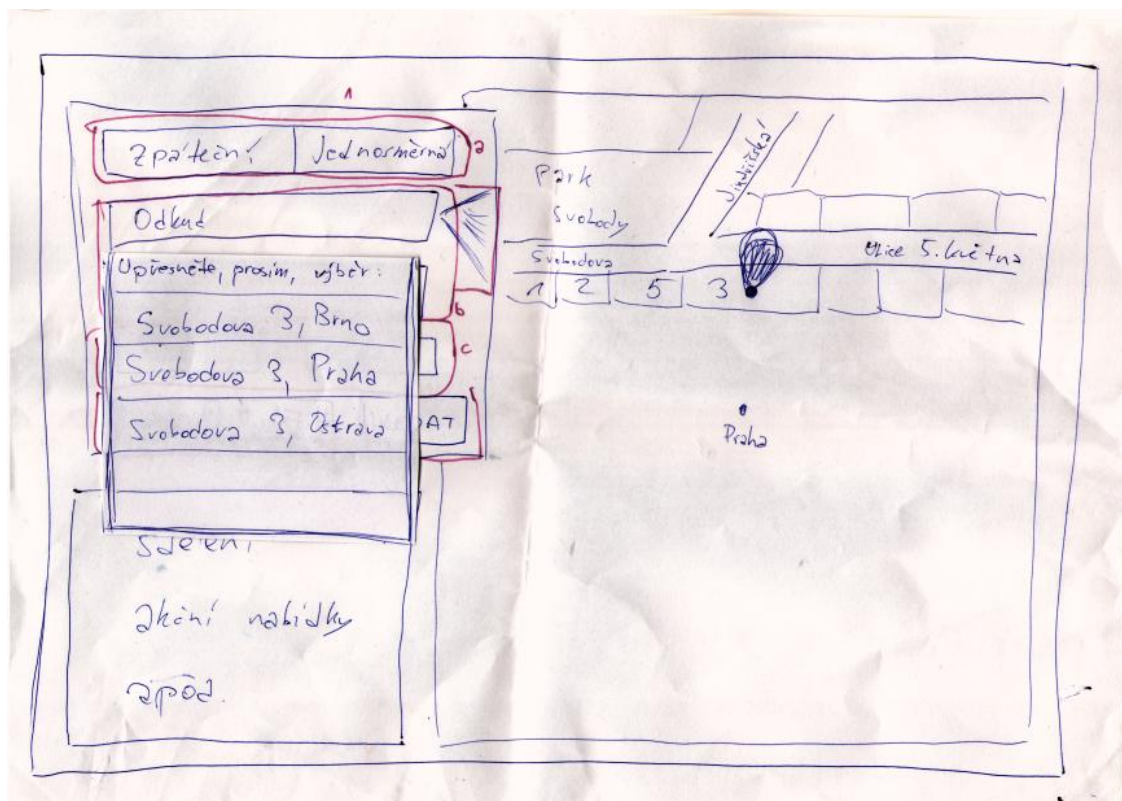 1
Zpáteční Jednosměrná a
Odkud
Upřesněte, prosím, výběr:
b
Svobodova 3, Brno
c
Svobodova 3, Praha
Svobodova 3, Ostrava
DAT
sdělení
akční nabídky
apod.
Park
Svobody
Jindřišská
Svobodova
Ulice 5. května
1 2 5 3
Praha